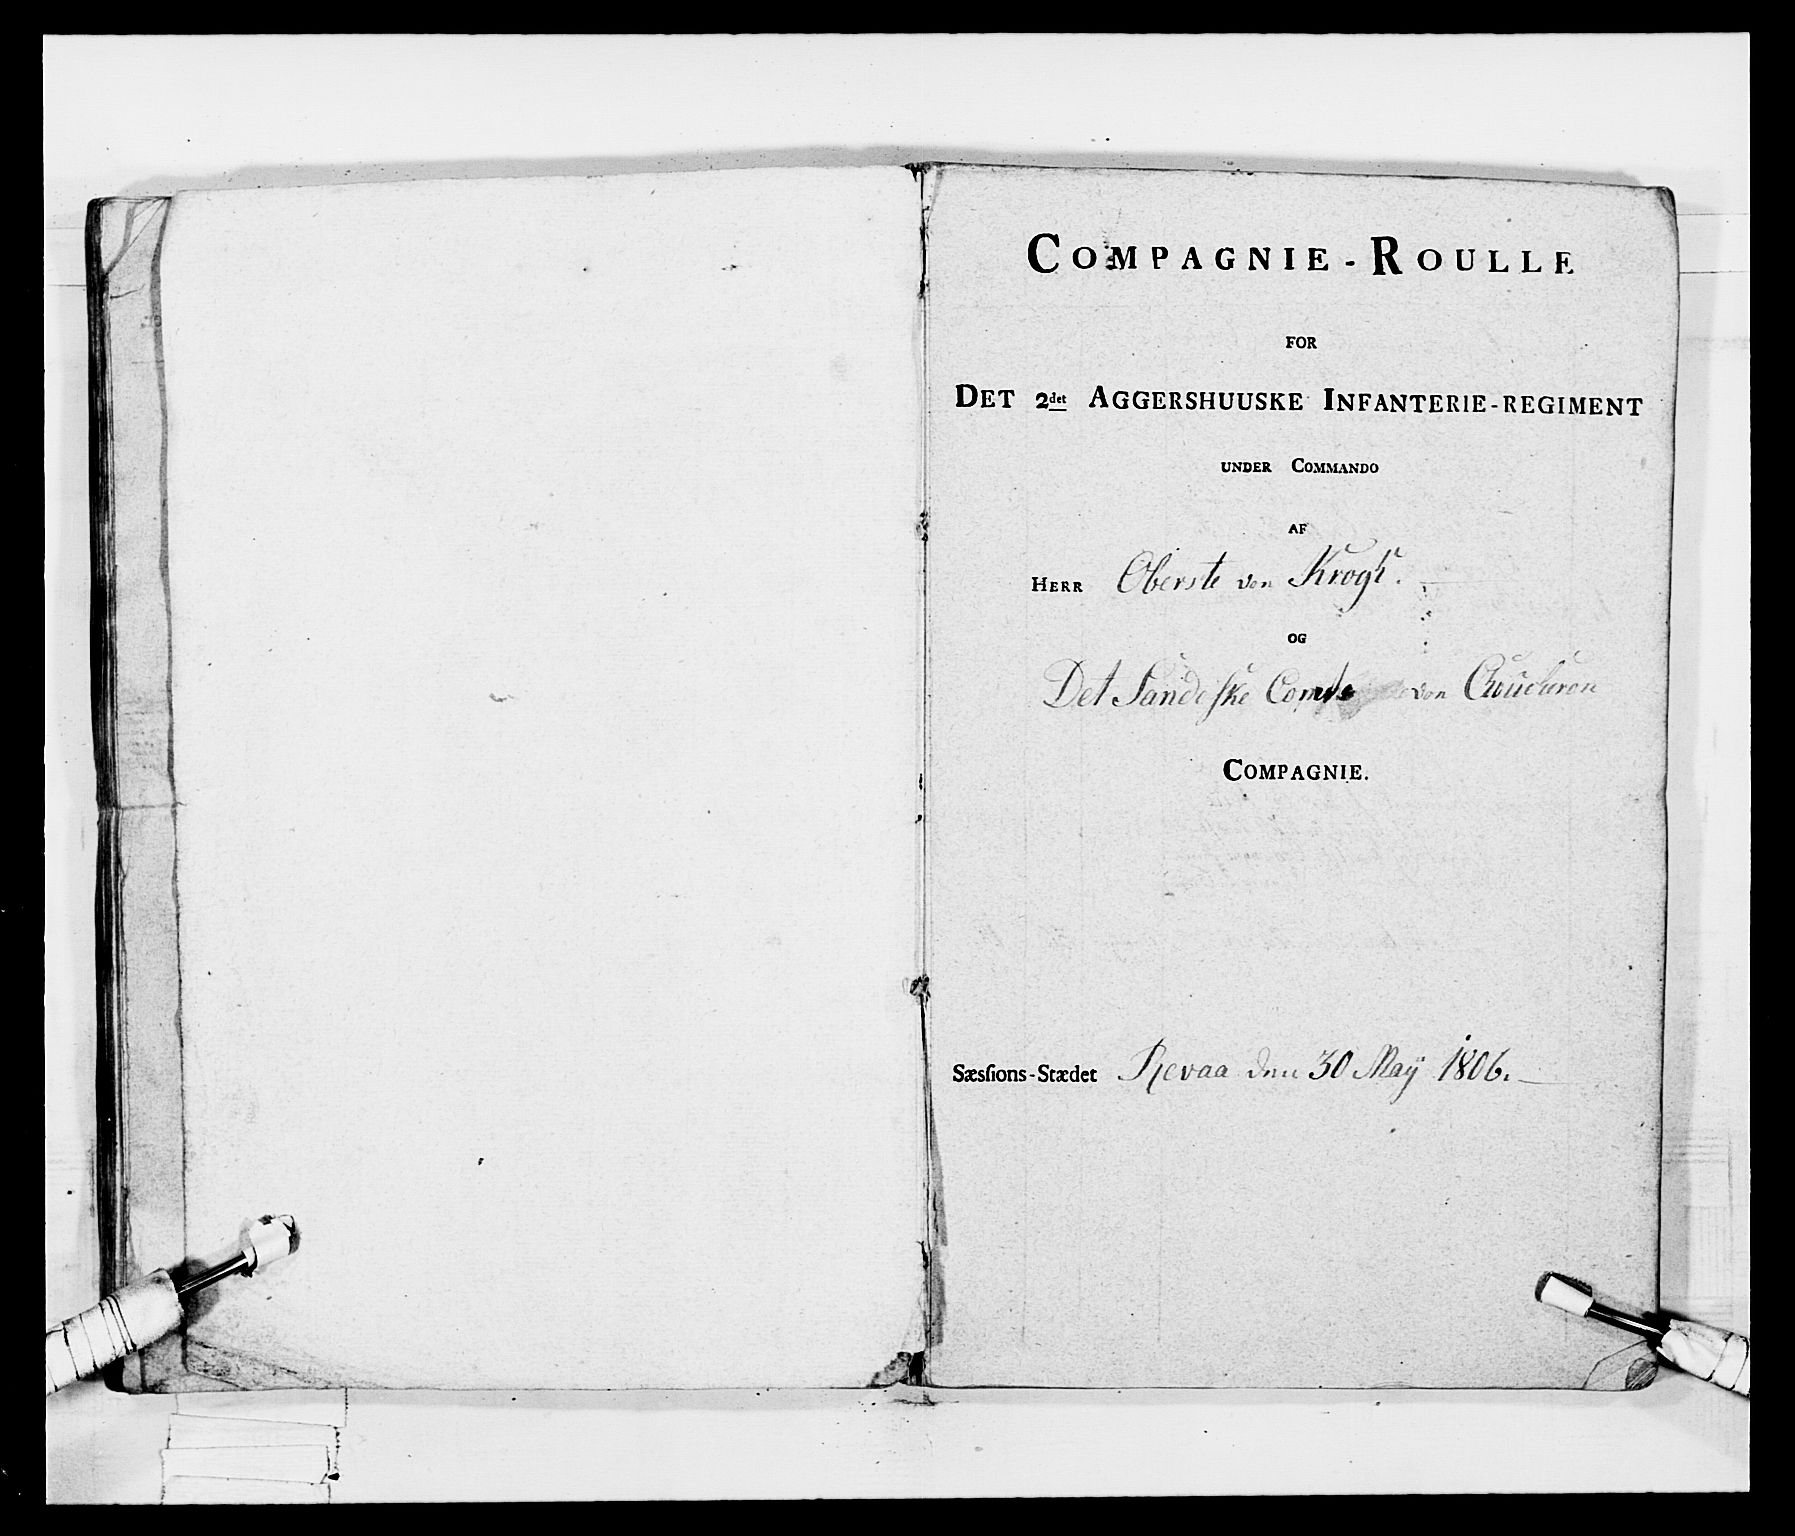 COMPAGNIE-ROULLE
FOR
DET 2det AGGERSHUUSKE INFANTERIE-REGIMENT
UNDER COMMANDO
AF
HERR Oberste von Krogh.
OG
Det Sandeske von
COMPAGNIE.
Sæsſions-Stædet Revaa den 30 May 1806.